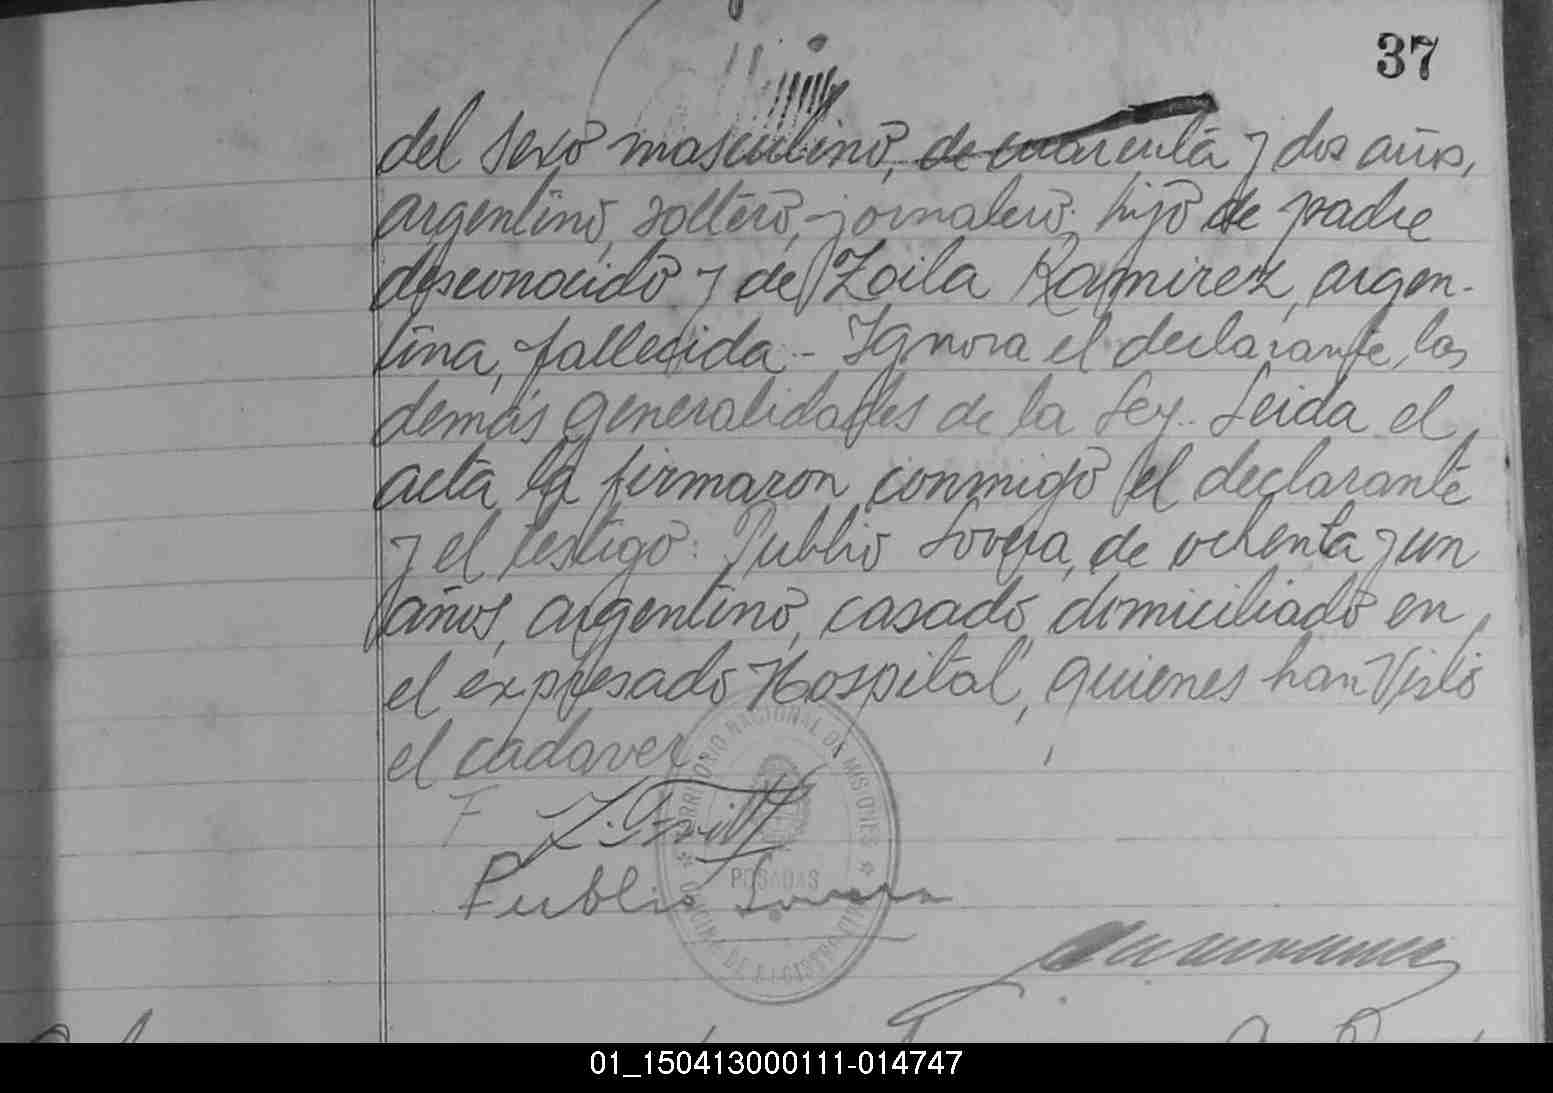 37
del sexo masculino, de cuarenta y dos años,
argentino, soltero, jornalero, hijo de padre
desconocido y de Zoila Ramirez, argen-
tina, fallecida.- Ignora el declarante, las
demás generalidades de la Ley.. Leida el
acta la firmaron conmigo el declarante
y el testigo: Publio Lovera, de ochenta y un
años, argentino, casado, domiciliado en
el expresado Hospital, quienes han visto
el cadaver
Publio Lovera
TERRITORIO NACIONAL DE MISIONES
POSADAS
01_150413000111-014747